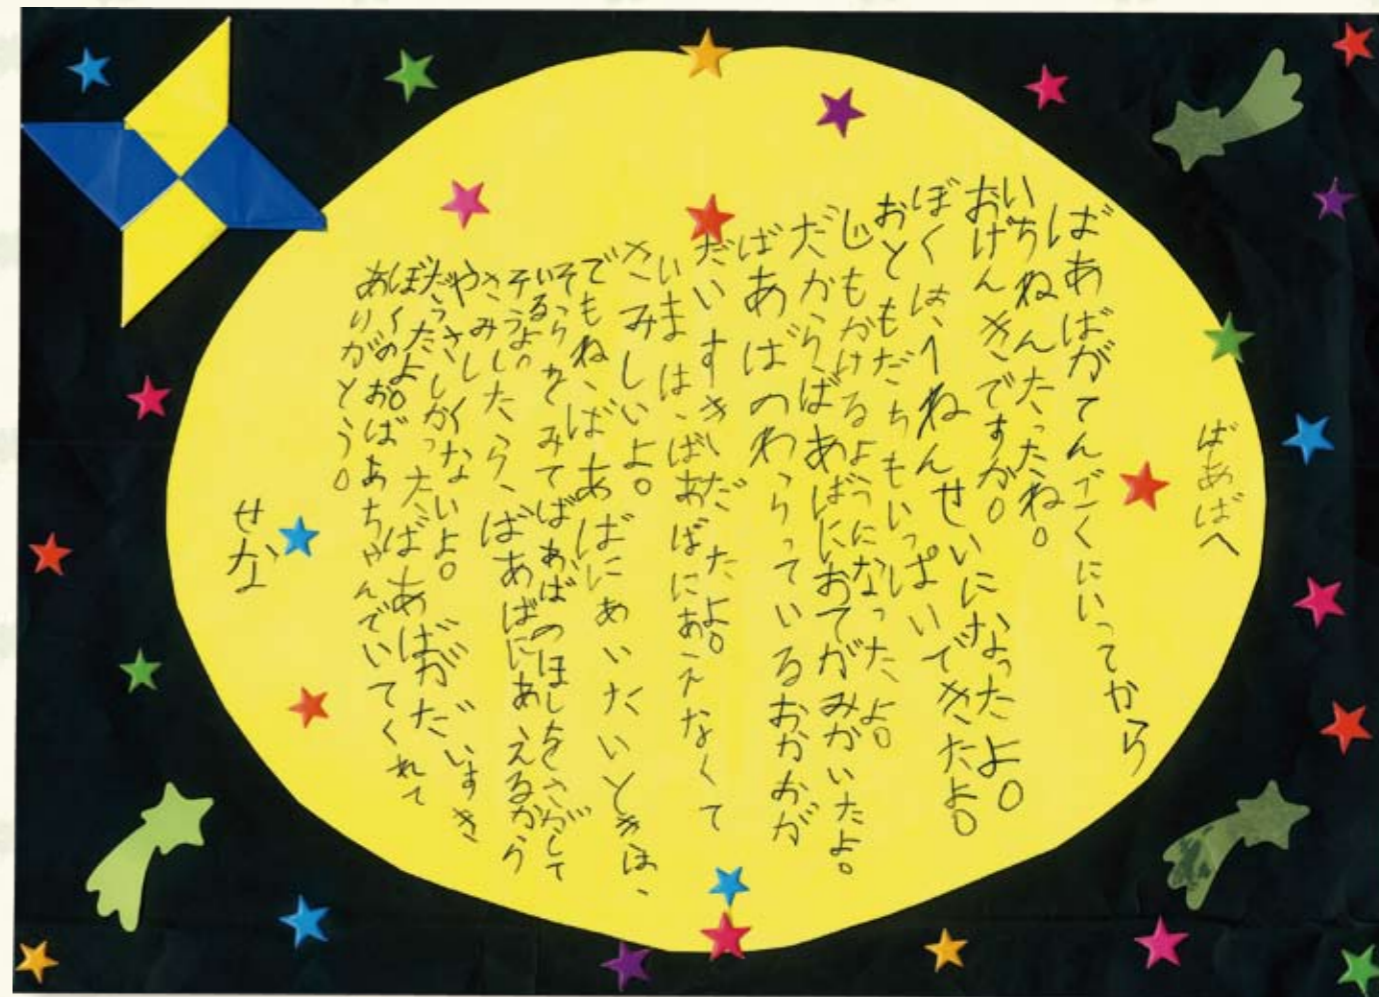 ばあばへ
ばあばがてんごくにいってから
いちねんたったね。
おげんきですか。
ぼくは、1ねんせいになったよ。
おともだちもいっぱいできたよ。
じもかけるようになったよ。
だから、ばあばにおてがみかいたよ。
ばあばのわらっているおかおが
だいすきだったよ。
いまは、ばあばにあえなくて
さみしいよ。
でもね、ばあばにあいたいときは、
そらをみてばあばのほしをさがして
いるよ。
そうしたら、ばあばにあえるから
さみしくないよ。
やさしかった、ばあばがだいすき
だったよ。
ぼくのおばあちゃんでいてくれて
ありがとう。
せな